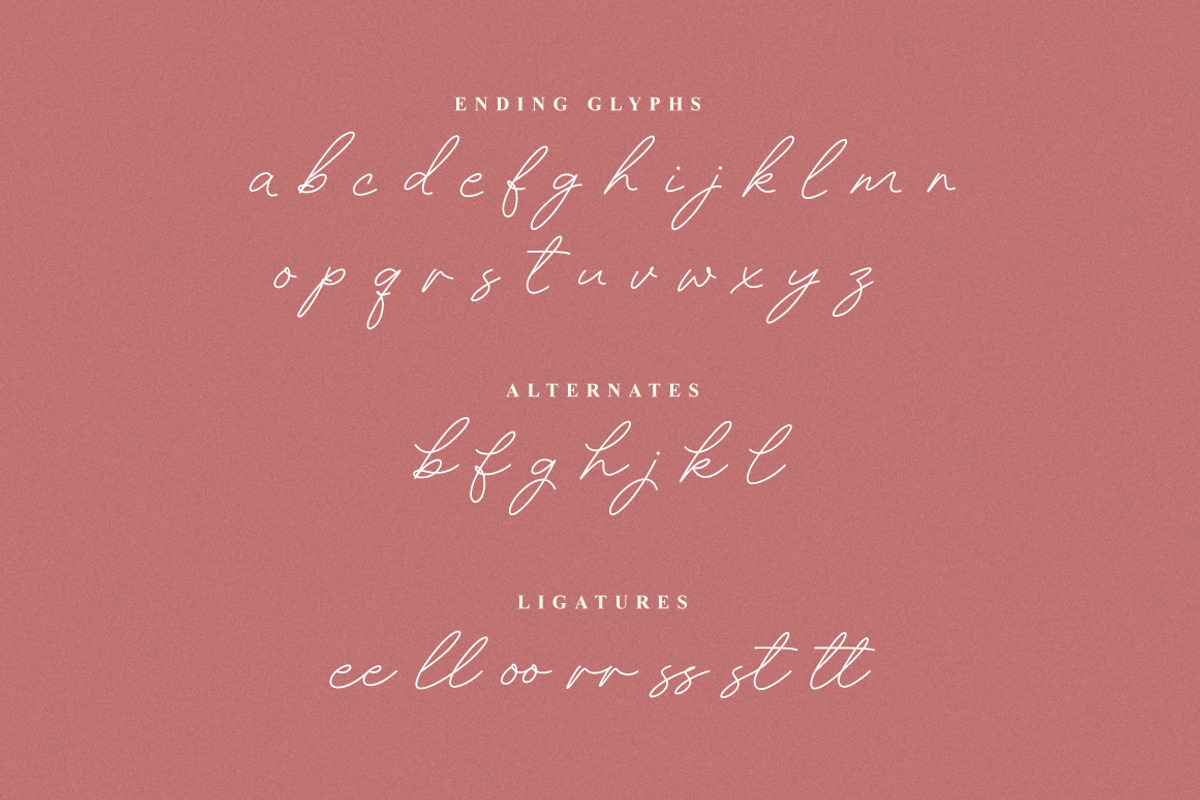 ENDING GLYPHS
a b c d e f g h i j k l m n
o p q r s t u v w x y z
ALTERNATES
b f g h j k l
LIGATURES
ee ll oo rr ss st tt